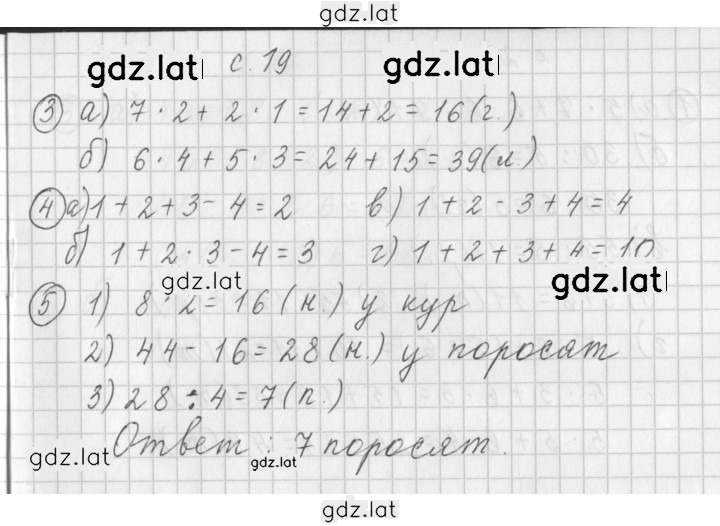 gdz.lat
gdz.lat с. 19 gdz.lat
③ а) 7 · 2 + 2 · 1 = 14 + 2 = 16 (г.)
б) 6 · 4 + 5 · 3 = 24 + 15 = 39 (л.)
④ а) 1 + 2 + 3 - 4 = 2 в) 1 + 2 - 3 + 4 = 4
б) 1 + 2 · 3 - 4 = 3 г) 1 + 2 + 3 + 4 = 10
gdz.lat gdz.lat
⑤ 1) 8 · 2 = 16 (н.) у кур
2) 44 - 16 = 28 (н.) у поросят
3) 28 : 4 = 7 (п.)
Ответ : 7 поросят.
gdz.lat gdz.lat
gdz.lat